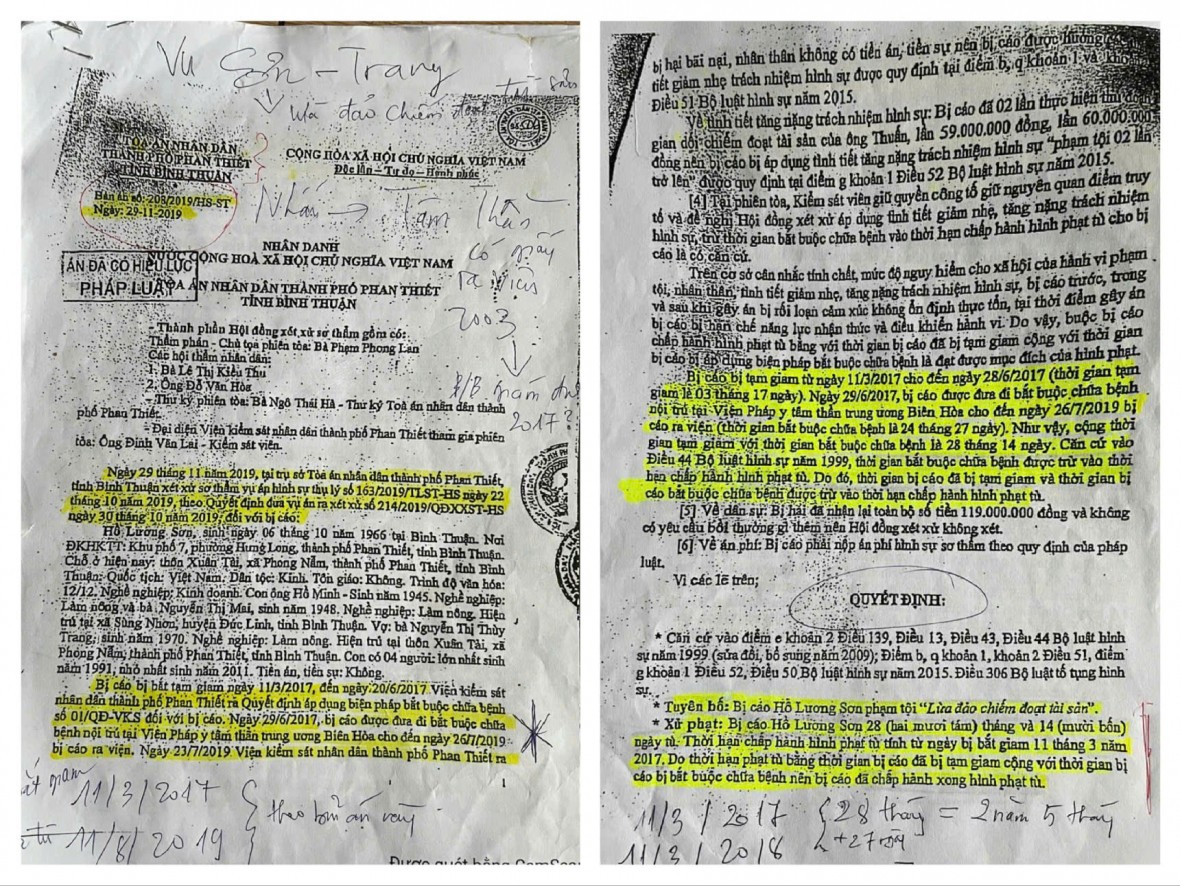 Vu Sơn - Trang
lừa đảo chiếm đoạt tài sản
TOÀ ÁN NHÂN DÂN
THÀNH PHỐ PHAN THIẾT
TỈNH BÌNH THUẬN
CỘNG HÒA XÃ HỘI CHỦ NGHĨA VIỆT NAM
Độc lập - Tự do - Hạnh phúc
Bản án số: 203/2019/HS-ST
Ngày: 29-11-2019
Tâm Thần
có giấy
ra viện
2003
2017?
NHÂN DANH
NƯỚC CỘNG HOÀ XÃ HỘI CHỦ NGHĨA VIỆT NAM
ÁN ĐÃ CÓ HIỆU LỰC
PHÁP LUẬT
TOÀ ÁN NHÂN DÂN THÀNH PHỐ PHAN THIẾT
TỈNH BÌNH THUẬN
- Thành phần Hội đồng xét xử sơ thẩm gồm có:
Thẩm phán - Chủ tọa phiên tòa: Bà Phạm Phong Lan
Các hội thẩm nhân dân:
1. Bà Lê Thị Kiều Thu
2. Ông Đỗ Văn Hòa
- Thư ký phiên tòa: Bà Ngô Thái Hà - Thư ký Toà án nhân dân thành
phố Phan Thiết.
- Đại diện Viện kiểm sát nhân dân thành phố Phan Thiết tham gia phiên
tòa: Ông Đinh Văn Lai - Kiểm sát viên.
Ngày 29 tháng 11 năm 2019, tại trụ sở Tòa án nhân dân thành phố Phan Thiết,
tỉnh Bình Thuận xét xử sơ thẩm vụ án hình sự thụ lý số 163/2019/TLST-HS ngày 22
tháng 10 năm 2019, theo Quyết định đưa vụ án ra xét xử số 214/2019/QĐXXST-HS
ngày 30 tháng 10 năm 2019, đối với bị cáo:
Hồ Lương Sơn, sinh ngày 06 tháng 10 năm 1966 tại Bình Thuận. Nơi
ĐKHKTT: Khu phố 7, phường Hưng Long, thành phố Phan Thiết, tỉnh Bình Thuận.
Chỗ ở hiện nay: thôn Xuân Tài, xã Phong Nẫm, thành phố Phan Thiết, tỉnh Bình
Thuận; Quốc tịch: Việt Nam. Dân tộc: Kinh. Tôn giáo: Không. Trình độ văn hóa:
12/12. Nghề nghiệp: Kinh doanh. Con ông Hồ Minh - Sinh năm 1945. Nghề nghiệp:
Làm nông và bà Nguyễn Thị Mai, sinh năm 1948. Nghề nghiệp: Làm nông. Hiện
trú tại xã Sùng Nhơn, huyện Đức Linh, tỉnh Bình Thuận. Vợ: bà Nguyễn Thị Thùy
Trang, sinh năm 1970. Nghề nghiệp: Làm nông. Hiện trú tại thôn Xuân Tài, xã
Phong Nẫm, thành phố Phan Thiết, tỉnh Bình Thuận. Con có 04 người: lớn nhất sinh
năm 1991, nhỏ nhất sinh năm 2011. Tiền án, tiền sự: Không.
Bị cáo bị bắt tạm giam ngày 11/3/2017, đến ngày 20/6/2017 Viện kiểm sát
nhân dân thành phố Phan Thiết ra Quyết định áp dụng biện pháp bắt buộc chữa bệnh
số 01/QĐ-VKS đối với bị cáo. Ngày 29/6/2017, bị cáo được đưa đi bắt buộc chữa
bệnh nội trú tại Viện Pháp y tâm thần trung ương Biên Hòa cho đến ngày 26/7/2019
bị cáo ra viện. Ngày 23/7/2019 Viện kiểm sát nhân dân thành phố Phan Thiết ra
1
11/3/2017
11/8/2019
theo bản án này
Được quét bằng CamScanner
bị hại bãi nại, nhân thân không có tiền án, tiền sự nên bị cáo được hưởng
tiết giảm nhẹ trách nhiệm hình sự được quy định tại điểm b, q khoản 1 và khoản
Điều 51 Bộ luật hình sự năm 2015.
Về tình tiết tăng nặng trách nhiệm hình sự: Bị cáo đã 02 lần thực hiện thủ đoạn
gian dối chiếm đoạt tài sản của ông Thuấn, lần 59.000.000 đồng, lần 60.000.000
đồng nên bị cáo bị áp dụng tình tiết tăng nặng trách nhiệm hình sự “phạm tội 02 lần
trở lên” được quy định tại điểm g khoản 1 Điều 52 Bộ luật hình sự năm 2015.
[4] Tại phiên tòa, Kiểm sát viên giữ quyền công tố giữ nguyên quan điểm truy
tố và đề nghị Hội đồng xét xử áp dụng tình tiết giảm nhẹ, tăng nặng trách nhiệm
hình sự, trừ thời gian bắt buộc chữa bệnh vào thời hạn chấp hành hình phạt tù cho bị
cáo là có căn cứ.
Trên cơ sở cân nhắc tính chất, mức độ nguy hiểm cho xã hội của hành vi phạm
tội, nhân thân, tình tiết giảm nhẹ, tăng nặng trách nhiệm hình sự, bị cáo trước, trong
và sau khi gây án bị rối loạn cảm xúc không ổn định thực tổn, tại thời điểm gây án
bị cáo bị hạn chế năng lực nhận thức và điều khiển hành vi. Do vậy, buộc bị cáo
chấp hành hình phạt tù bằng với thời gian bị cáo đã bị tạm giam cộng với thời gian
bị cáo bị áp dụng biện pháp bắt buộc chữa bệnh là đạt được mục đích của hình phạt.
Bị cáo bị tạm giam từ ngày 11/3/2017 cho đến ngày 28/6/2017 (thời gian tạm
giam là 03 tháng 17 ngày). Ngày 29/6/2017, bị cáo được đưa đi bắt buộc chữa bệnh
nội trú tại Viện Pháp y tâm thần trung ương Biên Hòa cho đến ngày 26/7/2019 bị
cáo ra viện (thời gian bắt buộc chữa bệnh là 24 tháng 27 ngày). Như vậy, cộng thời
gian tạm giam với thời gian bắt buộc chữa bệnh là 28 tháng 14 ngày. Căn cứ vào
Điều 44 Bộ luật hình sự năm 1999, thời gian bắt buộc chữa bệnh được trừ vào thời
hạn chấp hành hình phạt tù. Do đó, thời gian bị cáo đã bị tạm giam và thời gian bị
cáo bắt buộc chữa bệnh được trừ vào thời hạn chấp hành hình phạt tù.
[5] Về dân sự: Bị hại đã nhận lại toàn bộ số tiền 119.000.000 đồng và không
có yêu cầu bồi thường gì thêm nên Hội đồng xét xử không xét.
[6] Về án phí: Bị cáo phải nộp án phí hình sự sơ thẩm theo quy định của pháp
luật.
Vì các lẽ trên;
QUYẾT ĐỊNH:
* Căn cứ vào điểm e khoản 2 Điều 139, Điều 13, Điều 43, Điều 44 Bộ luật hình
sự năm 1999 (sửa đổi, bổ sung năm 2009); Điểm b, q khoản 1, khoản 2 Điều 51, điểm
g khoản 1 Điều 52, Điều 50 Bộ luật hình sự năm 2015. Điều 306 Bộ luật tố tụng hình
sự.
* Tuyên bố: Bị cáo Hồ Lương Sơn phạm tội “Lừa đảo chiếm đoạt tài sản”.
* Xử phạt: Bị cáo Hồ Lương Sơn 28 (hai mươi tám) tháng và 14 (mười bốn)
ngày tù. Thời hạn chấp hành hình phạt tù tính từ ngày bị bắt giam 11 tháng 3 năm
2017. Do thời hạn phạt tù bằng thời gian bị cáo đã bị tạm giam cộng với thời gian bị
cáo bị bắt buộc chữa bệnh nên bị cáo đã chấp hành xong hình phạt tù.
11/3/2017
28 tháng = 2 năm 5 tháng
11/3/2018